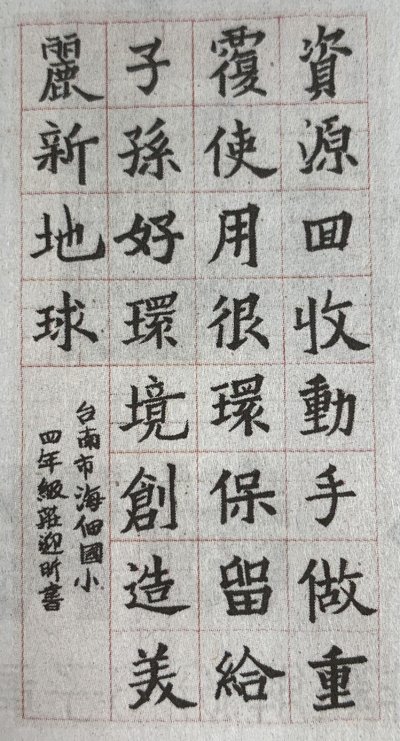 資源回收動手做重
覆使用很環保留給
子孫好環境創造美
麗新地球
台南市海佃國小
四年級莊迎昕書